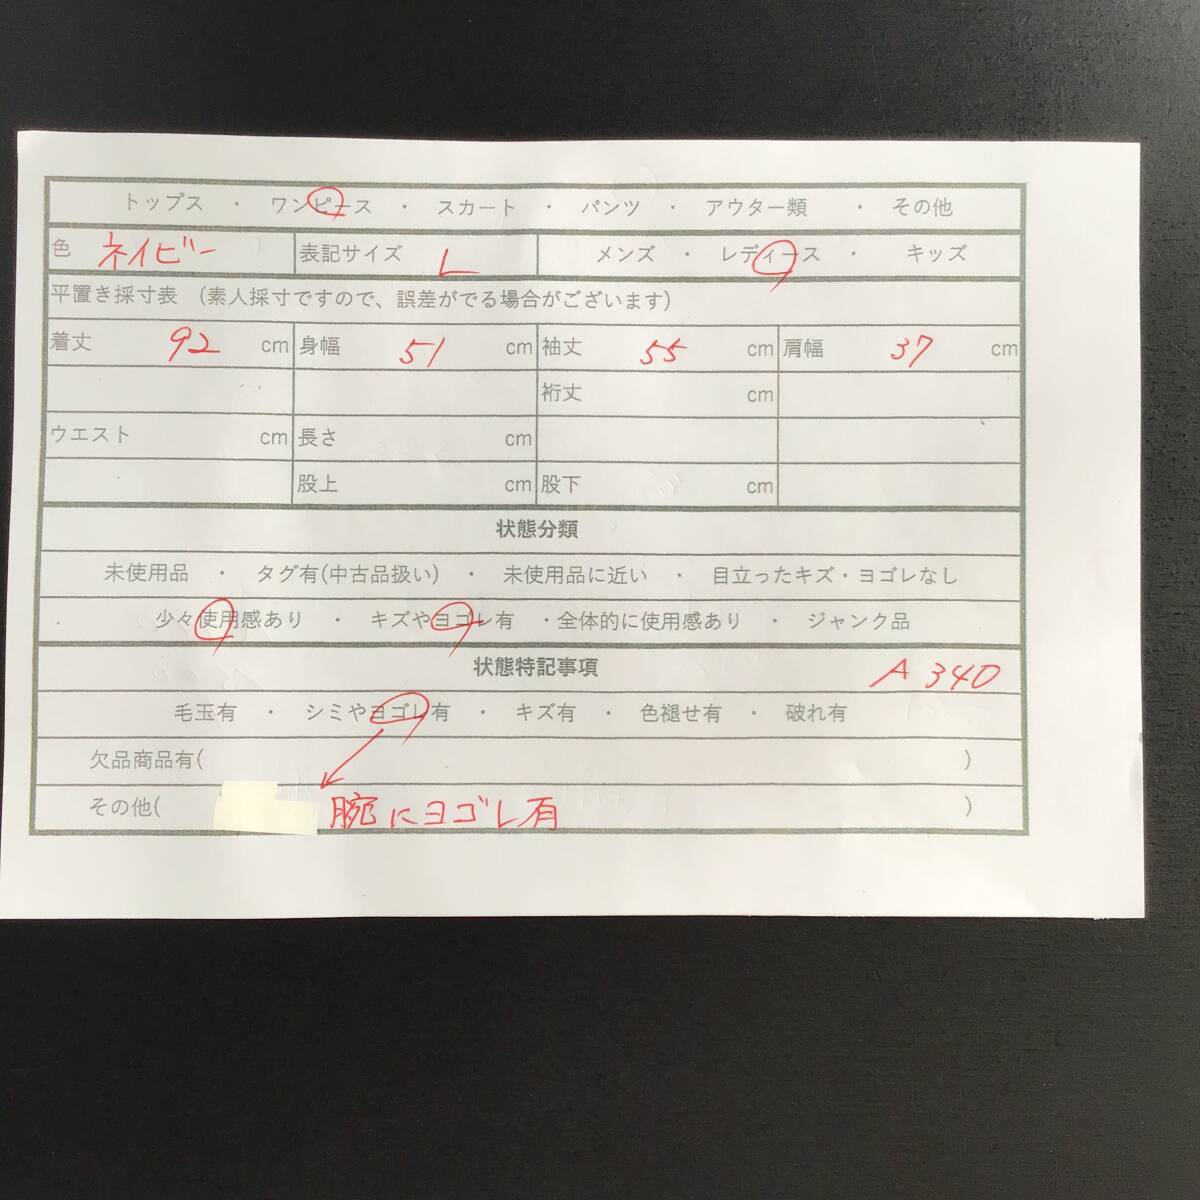 トップス ・ ワンピース ・ スカート ・ パンツ ・ アウター類 ・ その他
色 ネイビー 表記サイズ L メンズ ・ レディース ・ キッズ
平置き採寸表 (素人採寸ですので、誤差がでる場合がございます)
着丈 92 cm 身幅 51 cm 袖丈 55 cm 肩幅 37 cm
裄丈 cm
ウエスト cm 長さ cm
股上 cm 股下 cm
状態分類
未使用品 ・ タグ有(中古品扱い) ・ 未使用品に近い ・ 目立ったキズ・ヨゴレなし
少々使用感あり ・ キズやヨゴレ有 ・全体的に使用感あり ・ ジャンク品
状態特記事項 A 340
毛玉有 ・ シミやヨゴレ有 ・ キズ有 ・ 色褪せ有 ・ 破れ有
欠品商品有( )
その他( 腕にヨゴレ有 )